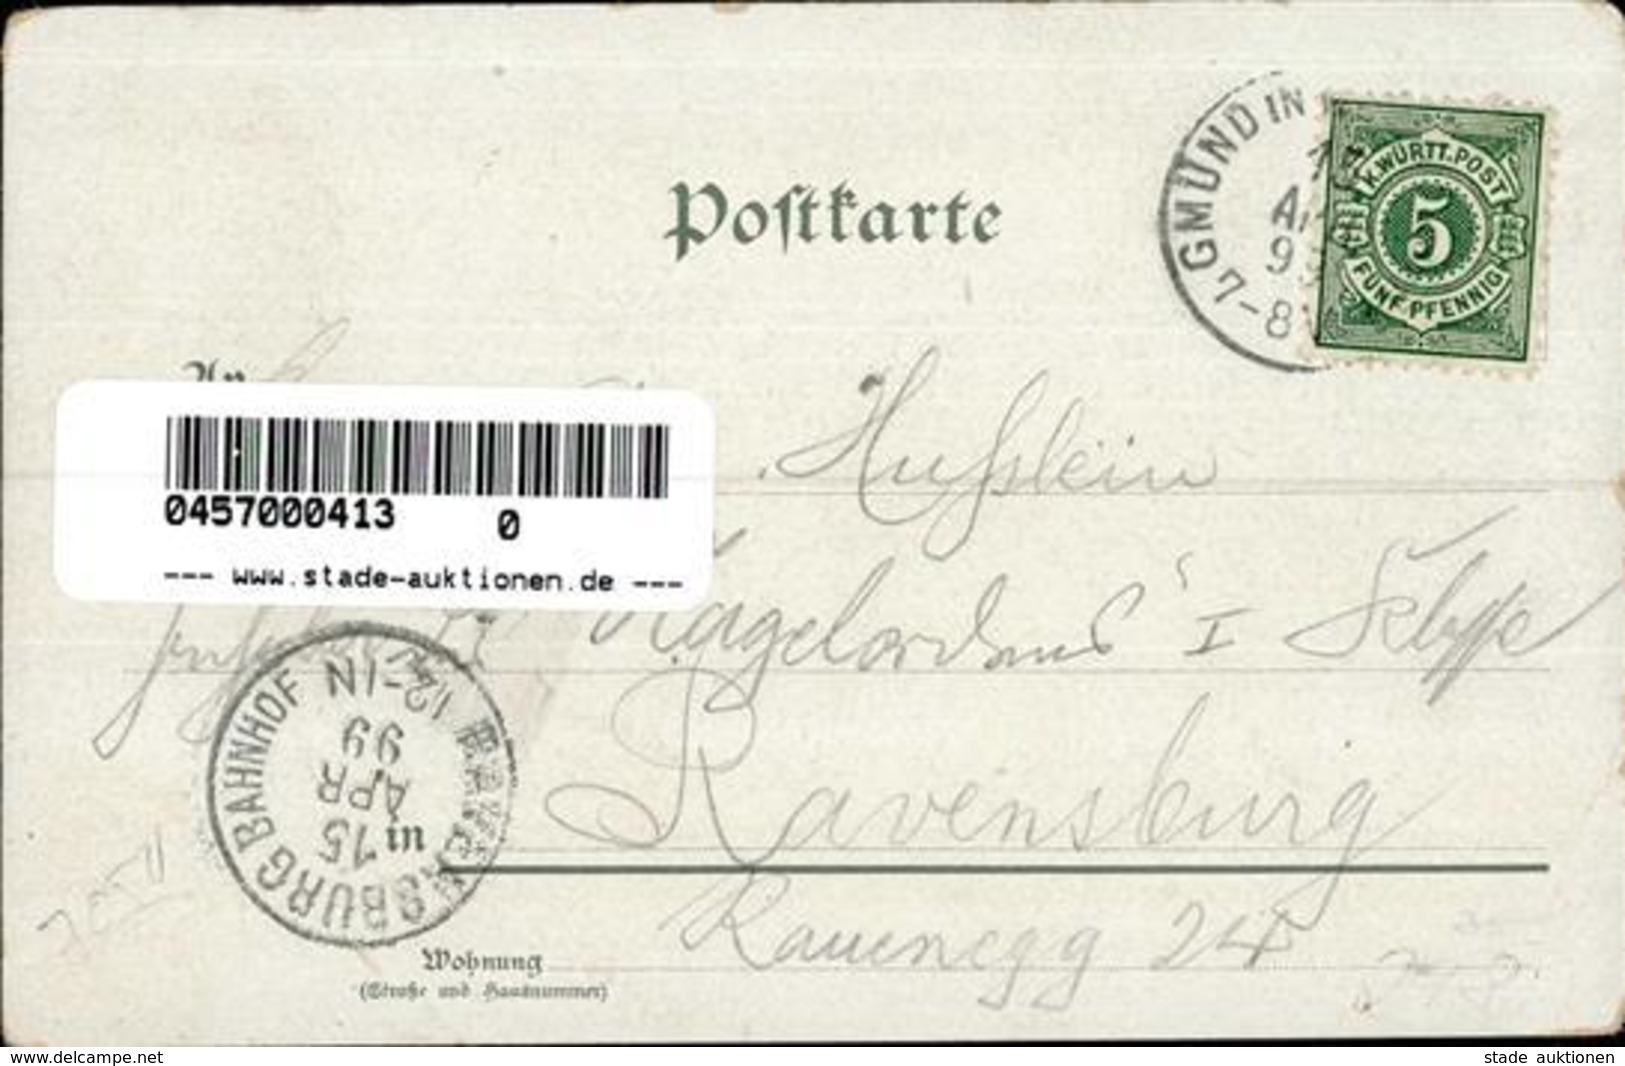 Postkarte
GMÜND IN
A
9
7-8
K. WÜRTT. POST
5
FÜNF PFENNIG
An
Hußlein
0457000413 0
--- www.stade-auktionen.de ---
I
Ravensburg
BURG BAHNHOF
12-1N
15
APR
99
in
Rauenegg 24
Wohnung
(Straße und Hausnummer)
www.delcampe.net
stade auktionen